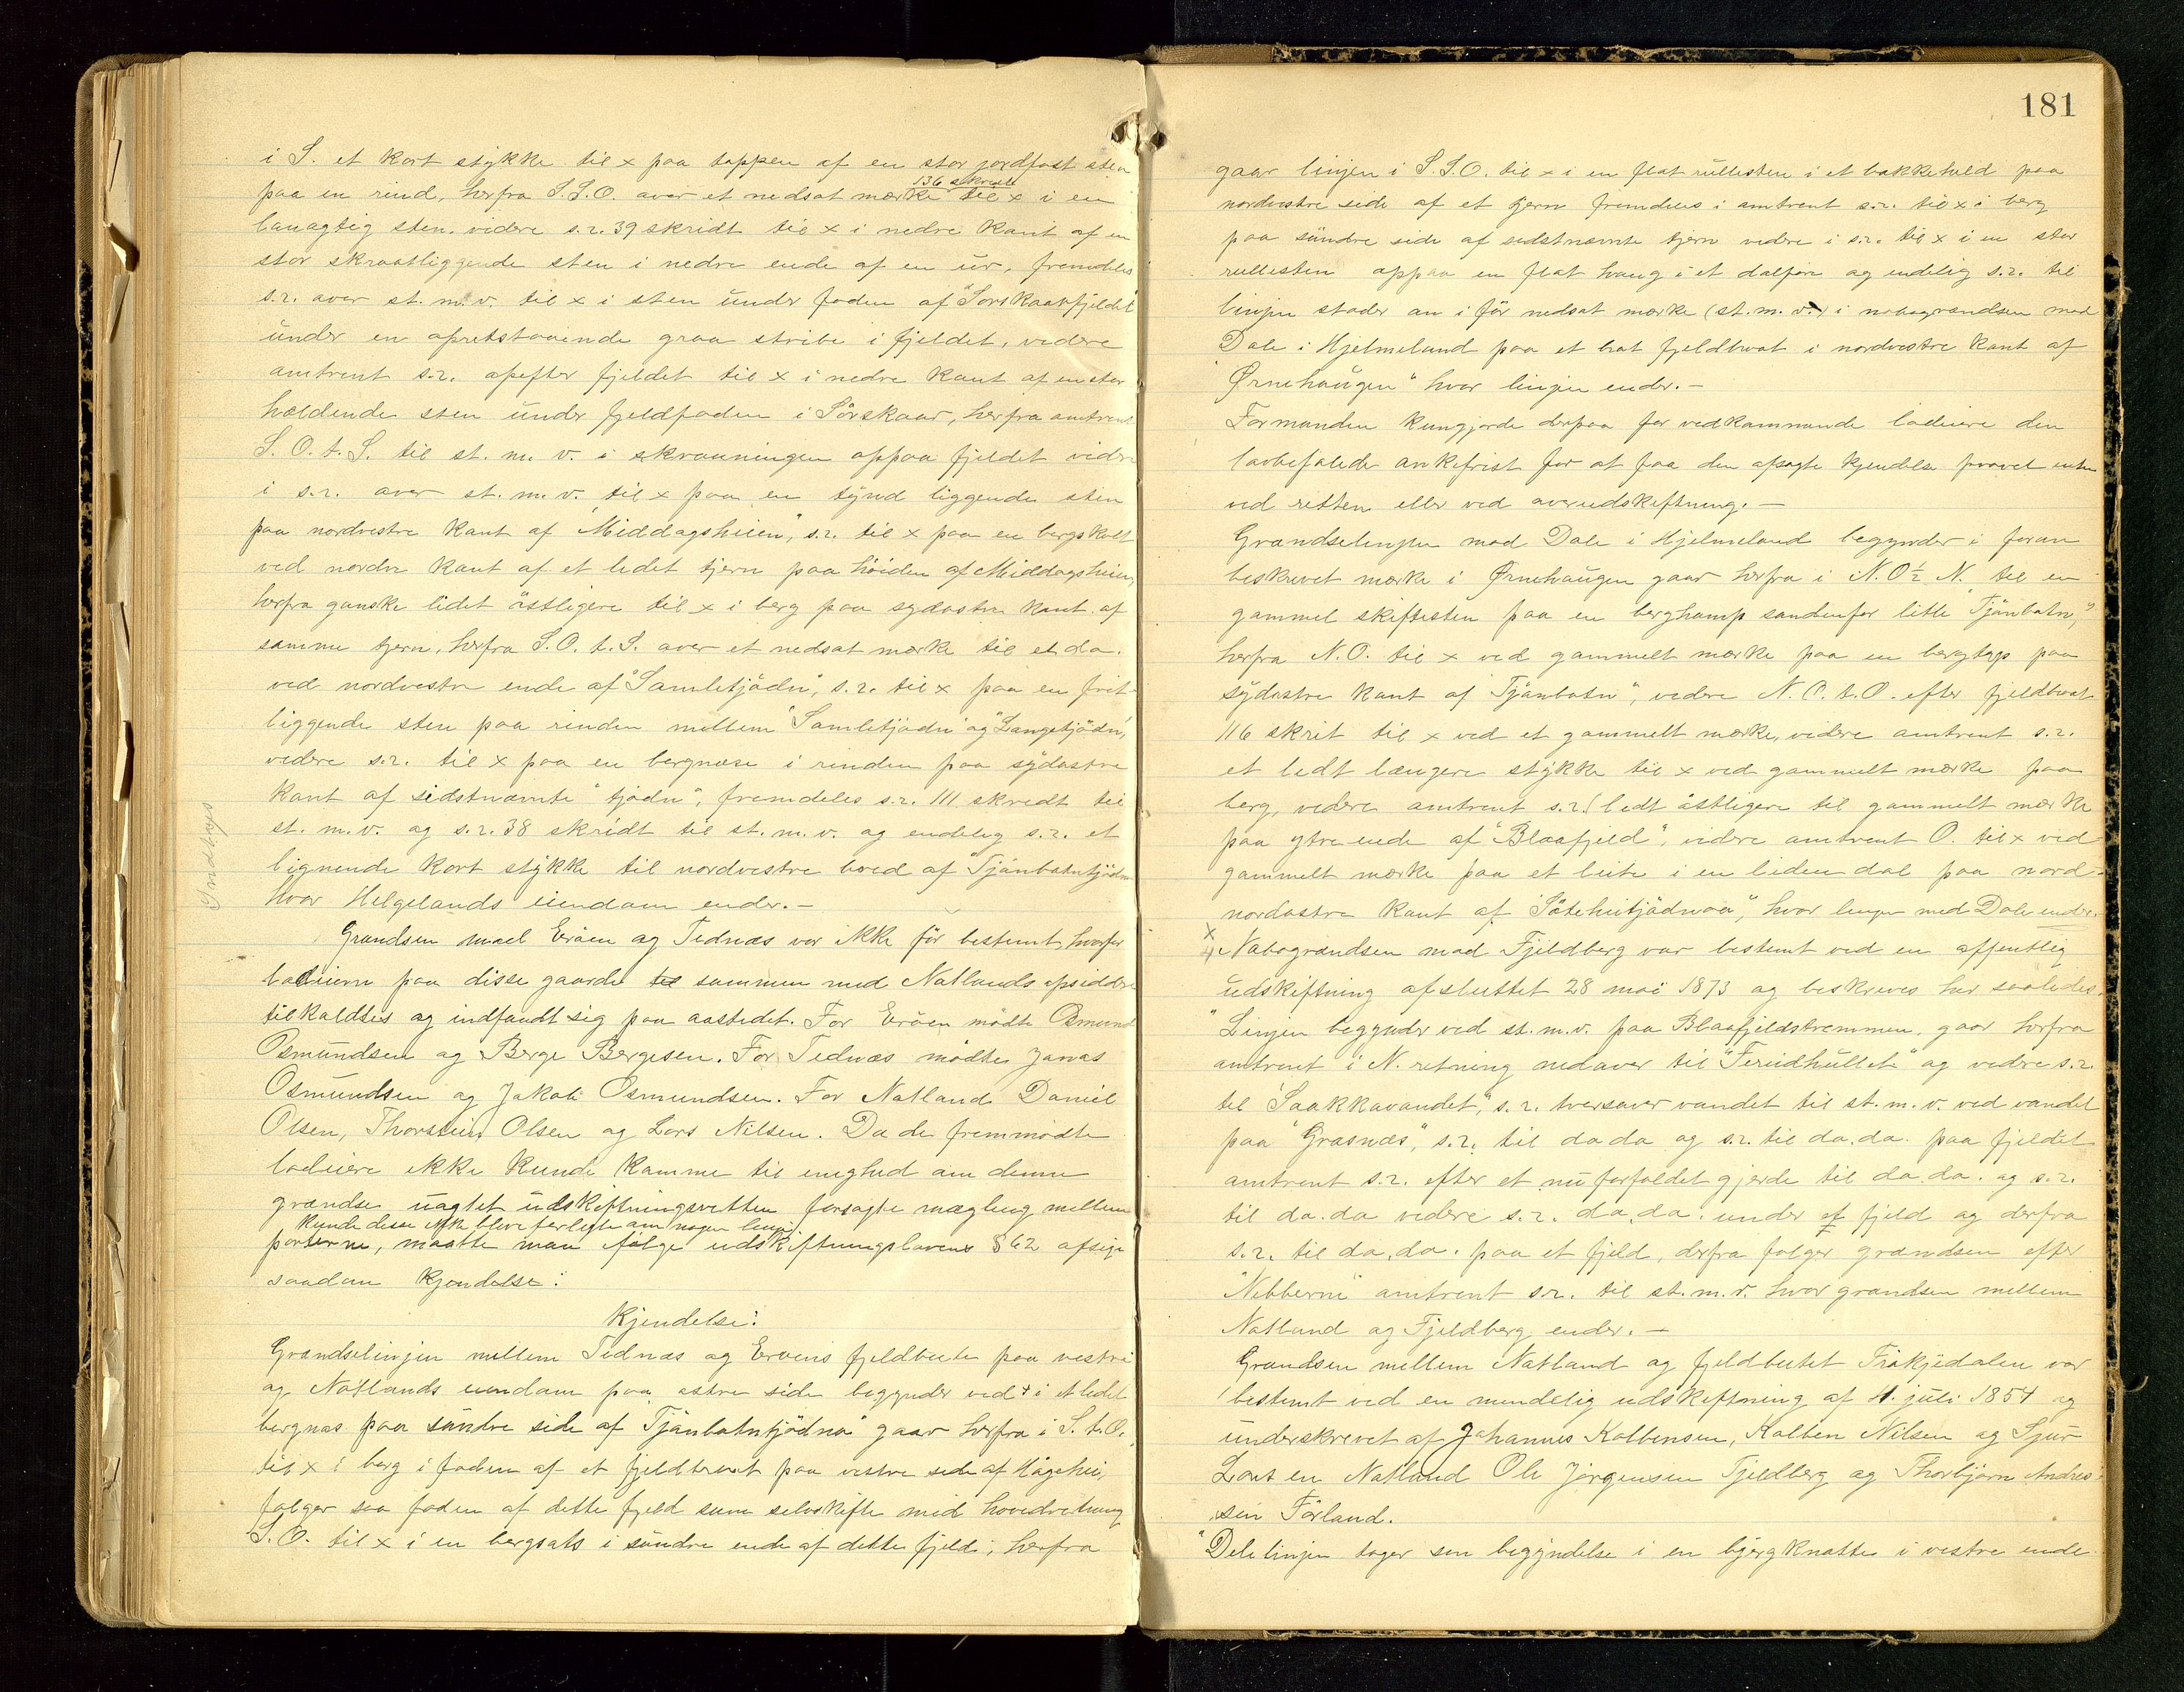 i S. et kort stykke til x paa toppen af en stor jordfast sten
136 skridt
paa en rind, herfra S.S.O. over et nedsat mærke til x i en
lauagtig sten. videre s.r. 39 skridt til x i nedre kant af en
stor skraatliggende sten i nedre ende af en ur, fremdeles
s.r. over st.m.v. til x i sten under foden af "Sørskaarfjeldet"
under en opretstaaende graa stribe i fjeldet, videre
omtrent s.r. opefter fjeldet til x i nedre kant af en stor
heldende sten under fjeldfoden i Sørskaar, herfra omtrent
S.O.t.S. til st.m.v. i skraaningen oppaa fjeldet videre
i s.r. over st.m.v. til x paa en tynd liggende sten
paa nordvestre kant af "Middagsheien", s.r. til x paa en bergskolt
ved nordre kant af et lidet tjern paa høiden af Middagsheien,
herfra ganske lidet østligere til x i berg paa sydøstre kant af
samme tjern, herfra S.O.t.S. over et nedsat mærke til et do.
ved nordvestre ende af "Samletjødn", s.r. til x paa en frit-
liggende sten paa rinden mellem "Samletjødn" og "Langetjødn",
videre s.r. til x paa en bergnase i rinden paa sydøstre
kant af sidstnævnte "tjødn", fremdeles s.r. 111 skridt til
st.m.v. og s.r. 38 skridt til st.m.v. og endelig s.r. et
lignende kort stykke til nordvestre bred af "Tjånbotntjødn"
hvor Helgelands eiendom ender.-
Grændsen mod Erøen og Tednæs var ikke før bestemt, hvorfor
lodeierne paa disse gaarde sammen med Natlands opsiddere
tilkaldtes og indfandt sig paa aastedet. For Erøen mødte Osmund
Osmundsen og Berge Bergesen. For Tednæs mødte Jonas
Osmundsen og Jakob Osmundsen. For Natland Daniel
Olsen, Thorstein Olsen og Lars Nilsen. Da de fremmødte
lodeiere ikke kunde komme til enighed om denne
grændse uagtet udskiftningsretten forsøgte mægling mellem
kunde disse ikke blive forligte om nogen linje
parterne, maatte man følge udskiftningslovens § 62 afsige
saadan kjendelse:
Kjendelse:
Grændselinjen mellem Tednæs og Erøens fjeldbeite paa vestre
og Natlands eiendom paa østre side begynder ved + i et lidet
bergnæs paa søndre side af "Tjånbotntjødnå" gaar herfra i S.t.O.
til x i berg i foden af et fjeldbrat paa vestre side af Hågehei,
følger saa foden af dette fjeld som selvskifte med hovedretning
S.O. til x i en bergsats i søndre ende af dette fjeld, herfra
Indtages
181
gaar linjen i S.S.O. til x i en flat rullesten i et bakkeheld paa
nordvestre side af et tjern fremdeles i omtrent s.r. til x i berg
paa søndre side af sidstnævnte tjern videre i s.r. til x i en stor
rullesten oppaa en flat haug i et dalføre og endelig s.r. til
linjen støder an i før nedsat mærke (st.m.v.) i nabogrændsen mod
Dale i Hjelmeland paa et brat fjeldbrat i nordvestre kant af
"Ørnehaugen" hvor linjen ender.-
Formanden kungjorde derpaa for vedkommende lodeiere den
lovbefalede ankefrist for at faa den afsagte kjendelse prøvet enten
ved retten eller ved overudskiftning.-
Grændselinjen mod Dale i Hjelmeland begynder i foran
beskrevet mærke i Ørnehaugen gaar herfra i N.O½N. til en
gammel skiftesten paa en berghamp søndenfor litle "Tjånbotn",
herfra N.O. til x ved gammelt mærke paa en bergtop paa
sydøstre kant af "Tjånbotn", videre N.O.t.O. efter fjeldbrat
116 skrit til x ved et gammelt mærke, videre omtrent s.r.
et lidt længere stykke til x ved gammelt mærke paa
berg, videre omtrent s.r. (lidt østligere til gammelt mærke
paa ytre ende af "Blaafjeld", videre omtrent O. til x ved
gammelt mærke paa et leite i en liden dal paa nord-
nordøstre kant af "Såteheitjødnaa", hvor linjen med Dale ender.
x
Nabogrændsen mod Fjeldberg var bestemt ved en offentlig
udskiftning afsluttet 28 mai 1873 og beskrives her saaledes.
"Linjen begynder ved st.m.v. paa Blaafjeldstremmen, gaar herfra
omtrent i N. retning nedover til "Fereidhullet" og videre s.r.
til "Saakkavandet", s.r. tversover vandet til st.m.v. ved vandet
paa "Grasnæs", s.r. til do do og s.r. til do.do. paa fjeldet
omtrent s.r. efter et nu forfaldet gjerde til do.do. og s.r.
til do.do videre s.r. do.do. under et fjeld og derfra
s.r. til do.do. paa et fjeld, derfra følger grændsen efter
"Nibberne" omtrent s.r. til st.m.v. hvor grændsen mellem
Natland og Fjeldberg ender.-
Grændsen mellem Natland og fjeldbeitet Frøkjedalen var
bestemt ved en mindelig udskiftning af 11. juli 1854 og
underskrevet af Johannes Kolbensen, Kolben Nilsen og Sjur
Larsen Natland Ole Jørgensen Fjeldberg og Thorbjørn Andrea-
sen Førland.
"Delelinjen tager sin begyndelse i en bjergknatte i vestre ende